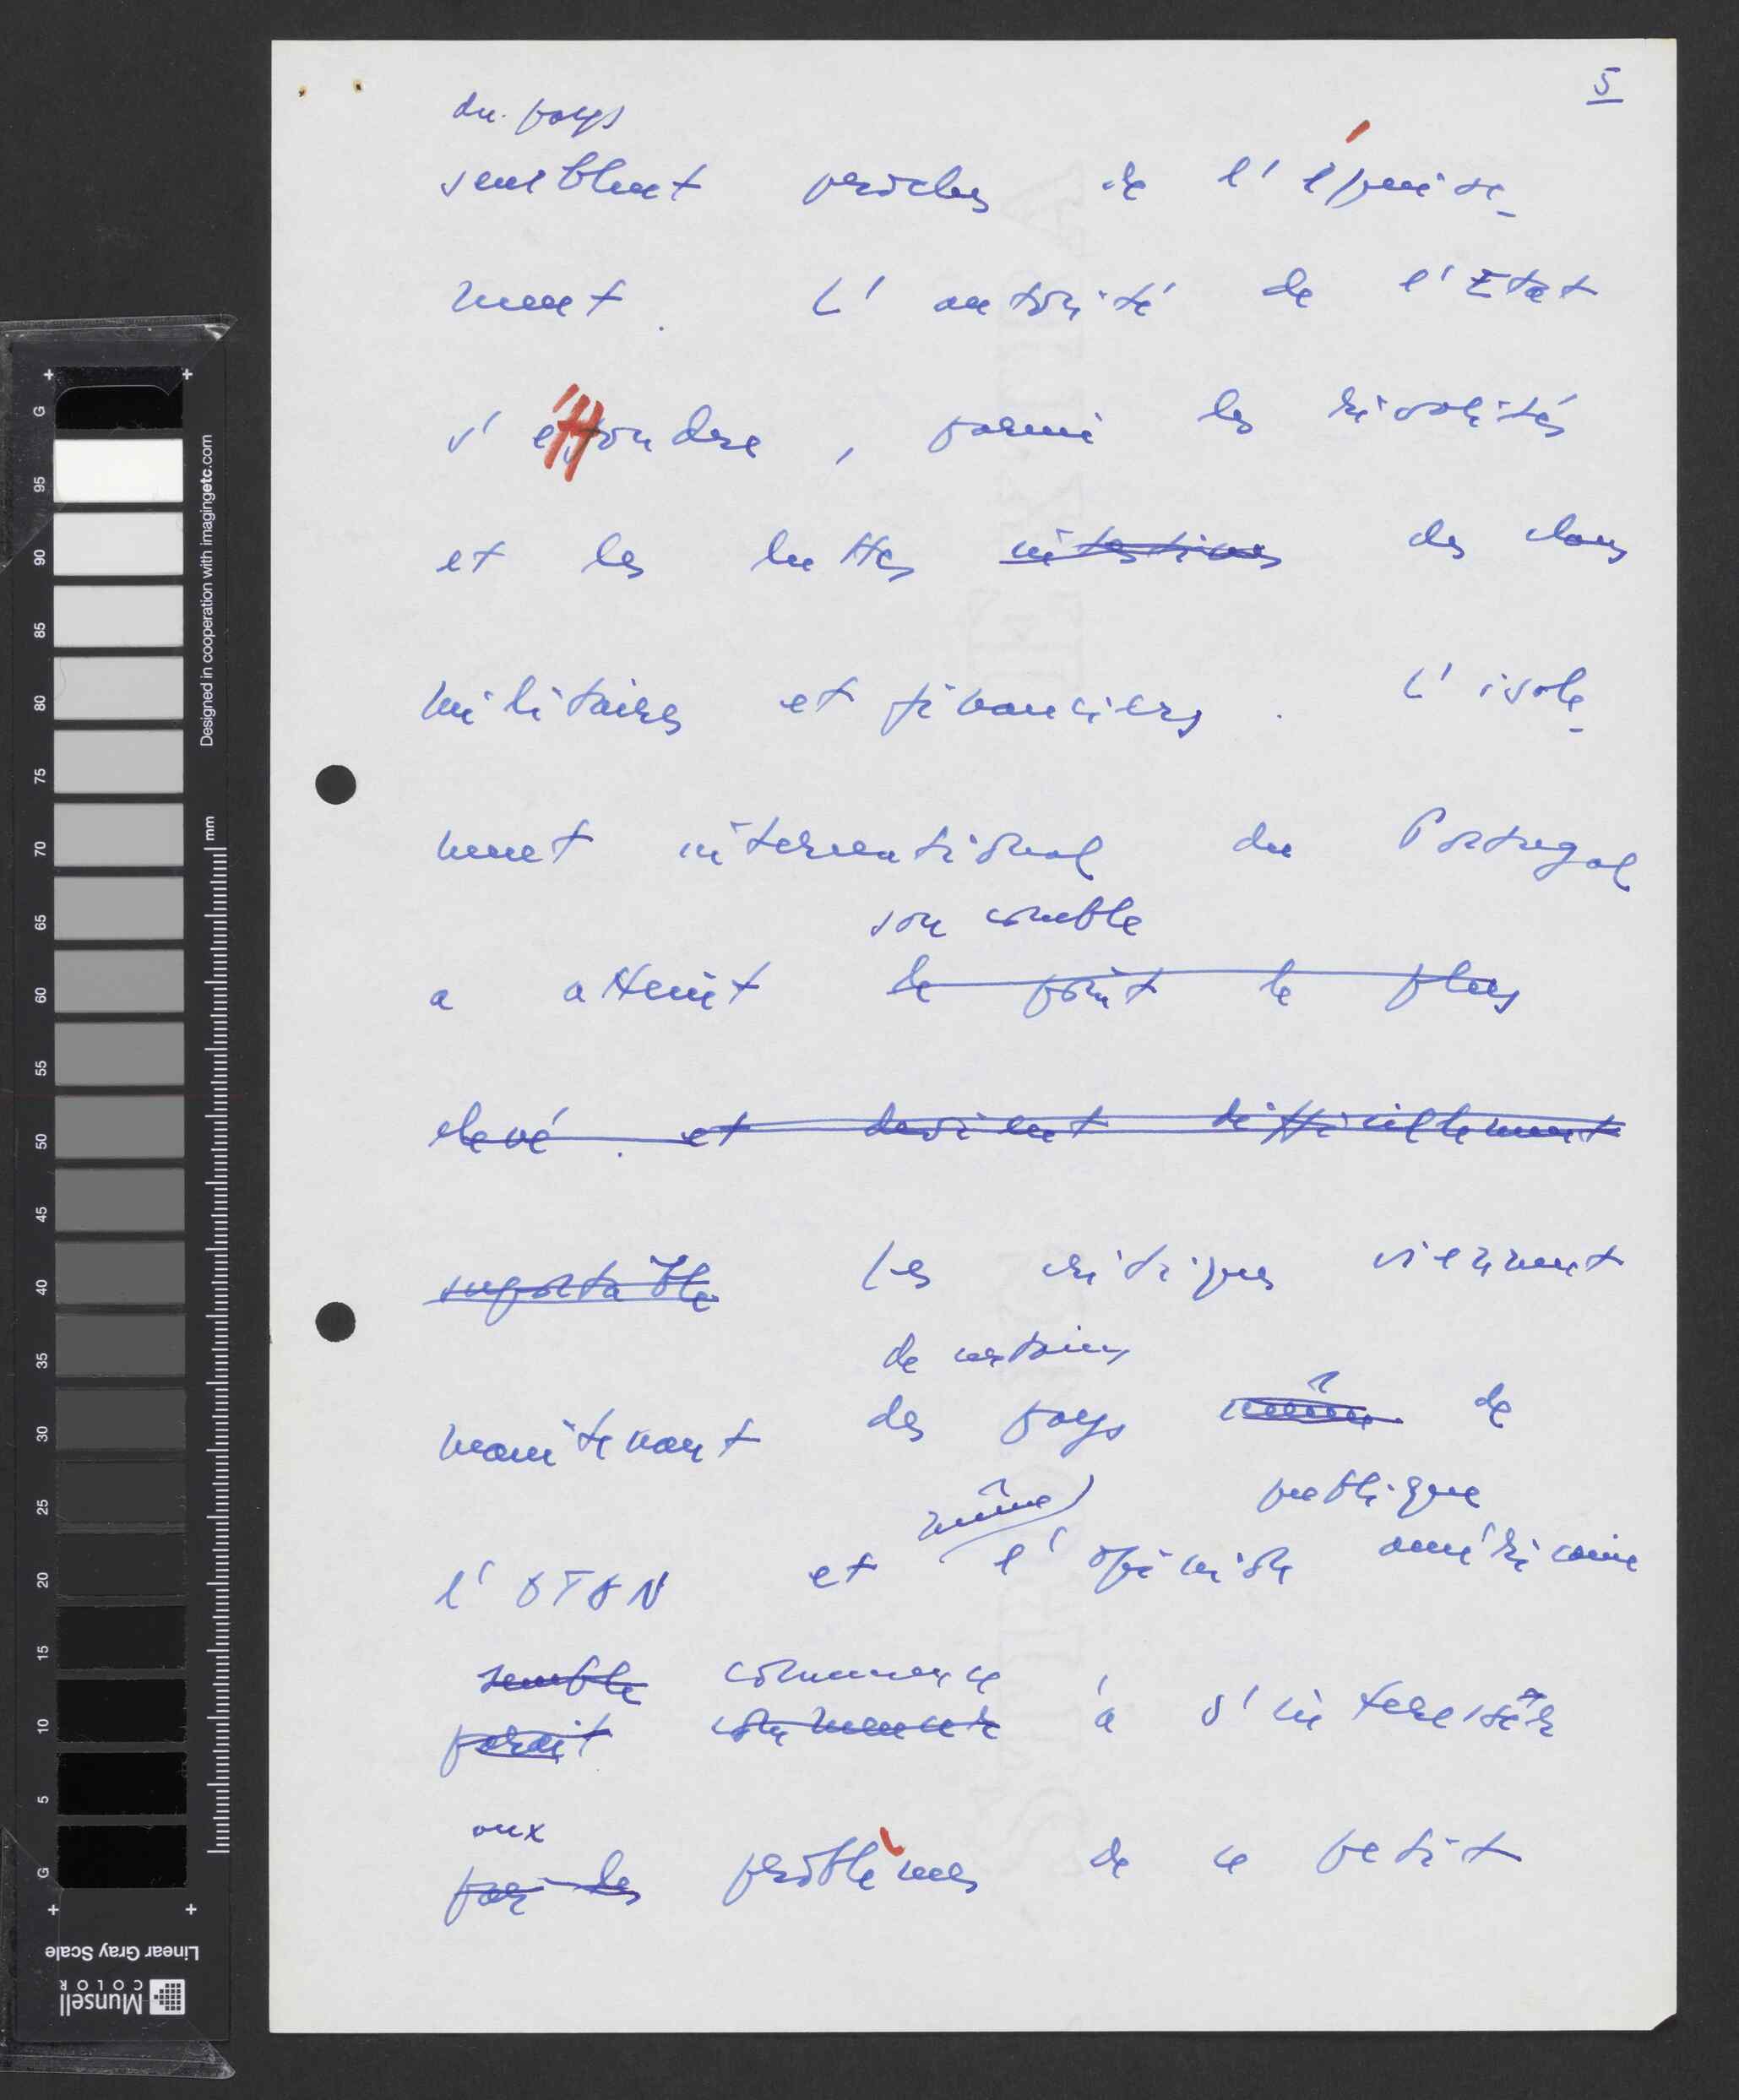 5
du pays
semblent proches de l'épuise-
ment. L'autorité de l'Etat
s'effondre, parmi les rivalités
et les luttes intestines des clans
militaires et financiers. L'isole-
ment international du Portugal
son comble
a atteint le point le plus
elevé. et devient difficillement
suportable Les critiques viennent
de certains
maintenant des pays même de
même publique
l'OTAN et l'opinion américaine
semble commence
parait commencer à s'interesser
aux
par les problèmes de ce petit
G 95 90 85 80 75 70 65 60 55 50 45 40 35 30 25 20 15 10 5 G
Designed in cooperation with imagingetc.com
mm
Linear Gray Scale
Munsell
COLOR